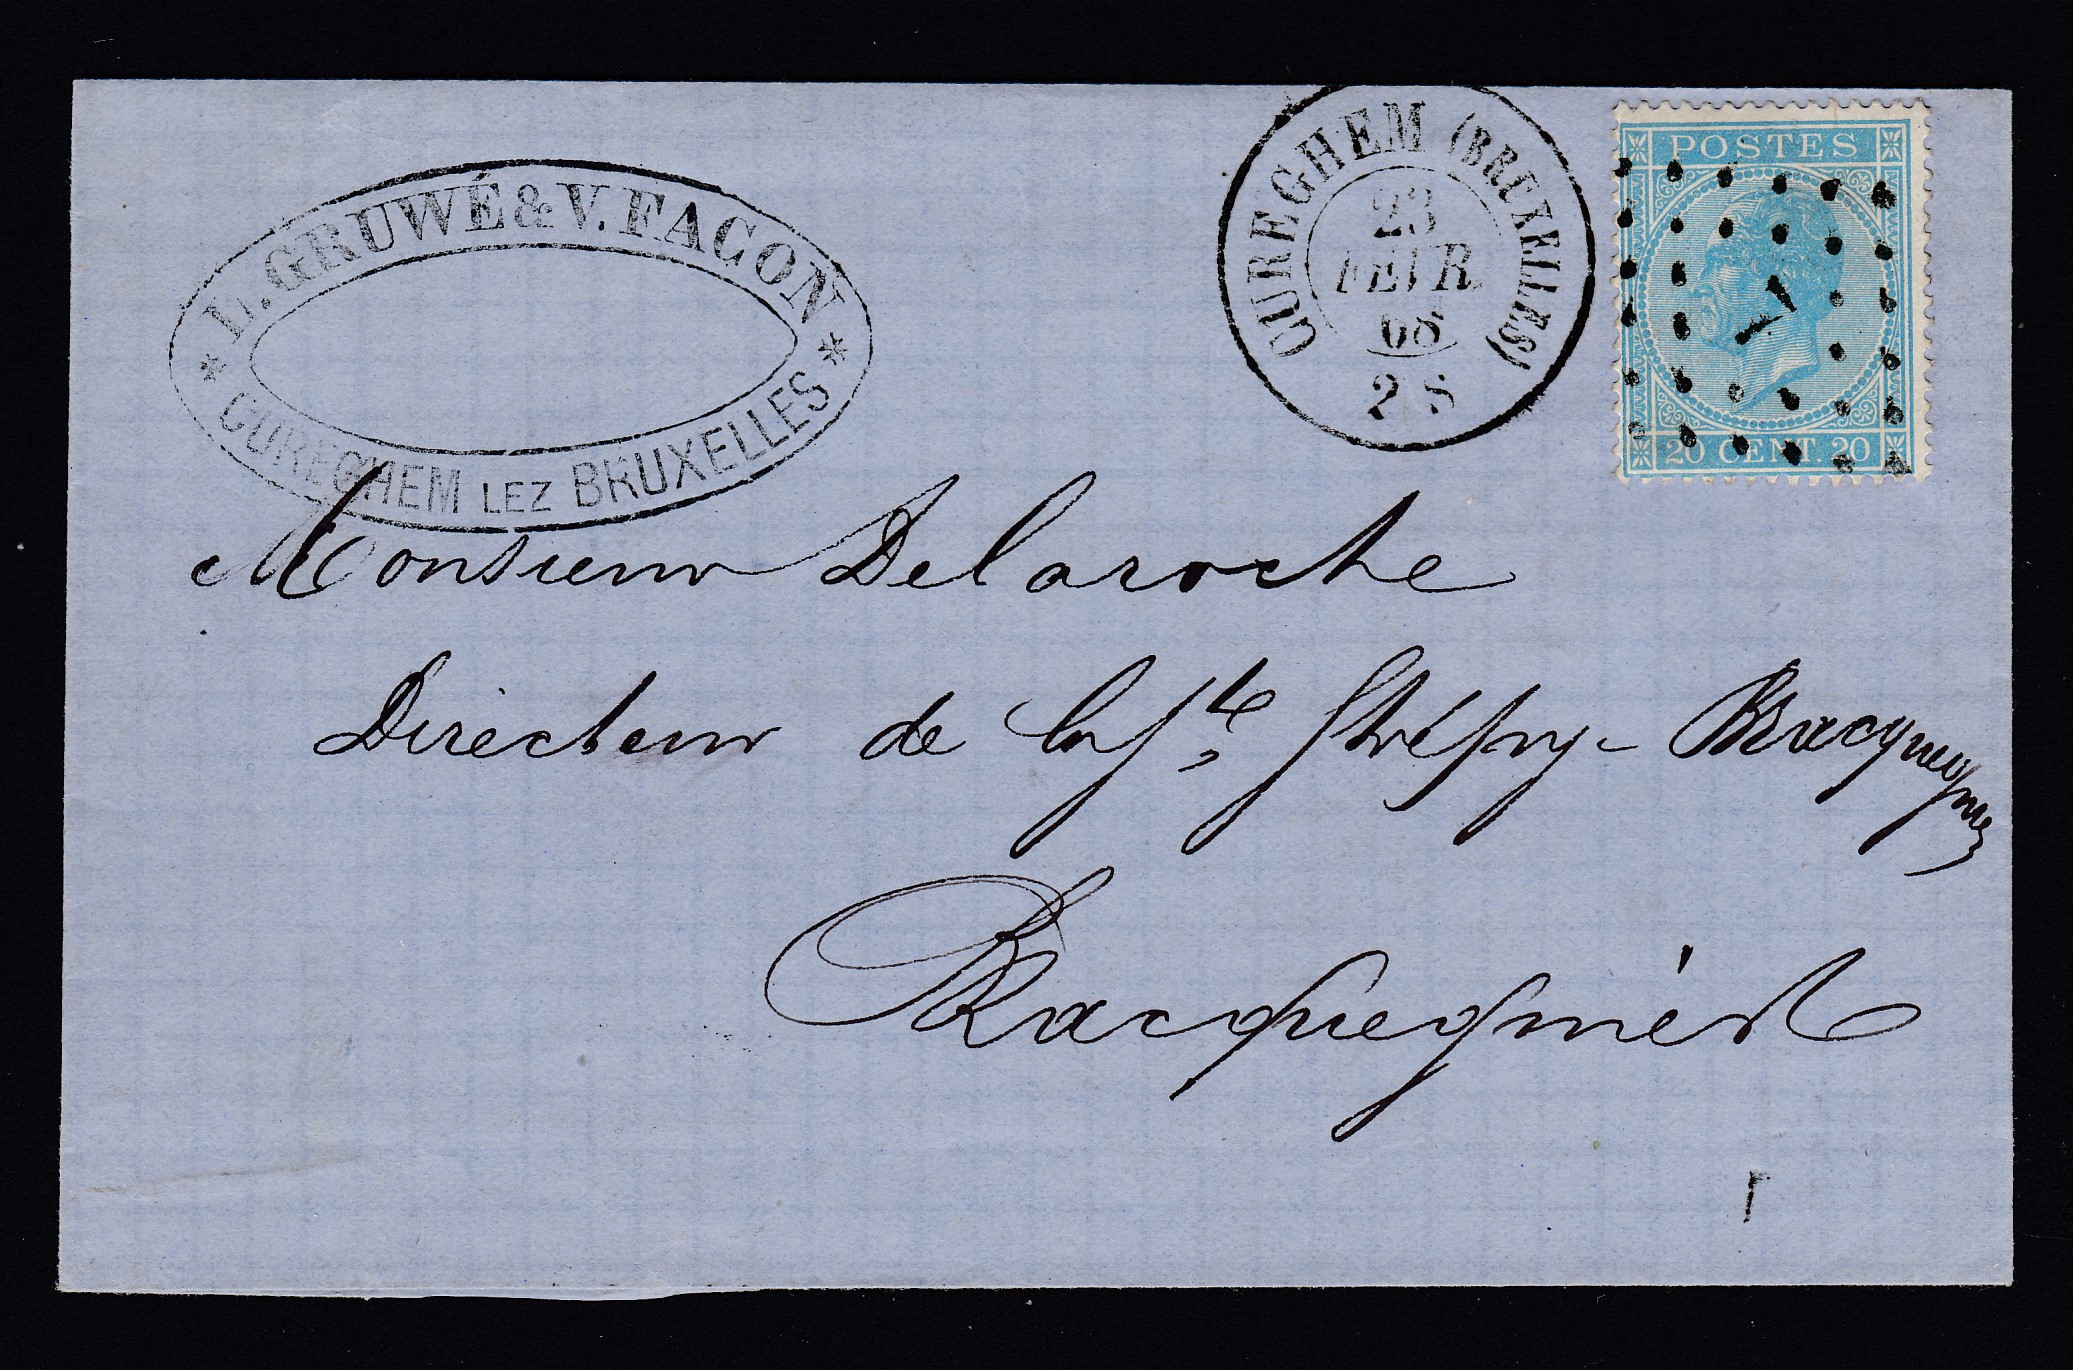 * L. GRUWÉ & V. FACON *
CUREGHEM LEZ BRUXELLES
CUREGHEM (BRUXELLES)
23
FEVR
68
2 S
POSTES
20 CENT. 20
Monsieur Delaroche
Directeur de la Sté Strépy-Bracquegnies
Bracquegnies
1